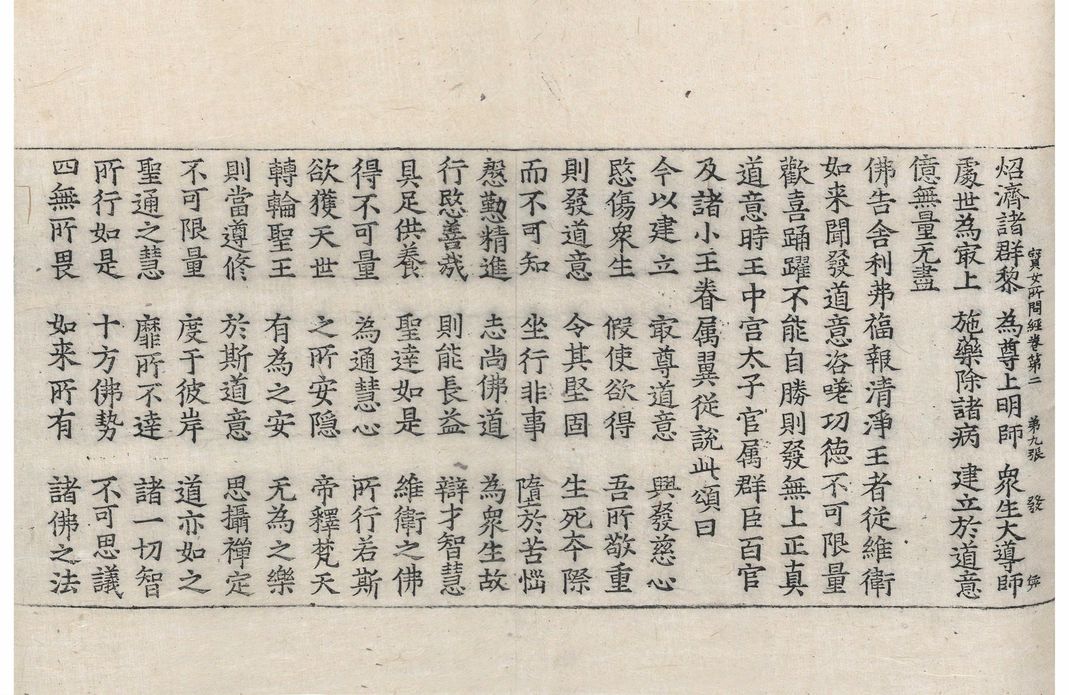 寳女所問經卷第二　第九張　發
炤濟諸群黎　為尊上明師　衆生大導師
處世為㝡上　施藥除諸病　建立於道意
億無量无盡
佛告舍利弗福報清淨王者從維衛
如来聞發道意咨嗟功德不可限量
歡喜踊躍不能自勝則發無上正真
道意時王中宫太子官属群臣百官
及諸小王眷属翼従說此頌曰
今以建立　㝡尊道意　興發慈心
愍傷衆生　假使欲得　吾所敬重
則發道意　令其堅固　生死夲際
而不可知　坐行非事　墮於苦惱
慇懃精進　志尚佛道　為衆生故
行愍善哉　則能長益　辯才智慧
具足供養　聖達如是　維衛之佛
得不可量　為通慧心　所行若斯
欲獲天世　之所安隠　帝釋梵天
轉輪聖王　有為之安　无為之樂
則當遵修　於斯道意　思攝禪定
不可限量　度于彼岸　道亦如之
聖通之慧　靡所不達　諸一切智
所行如是　十方佛勢　不可思議
四無所畏　如来所有　諸佛之法